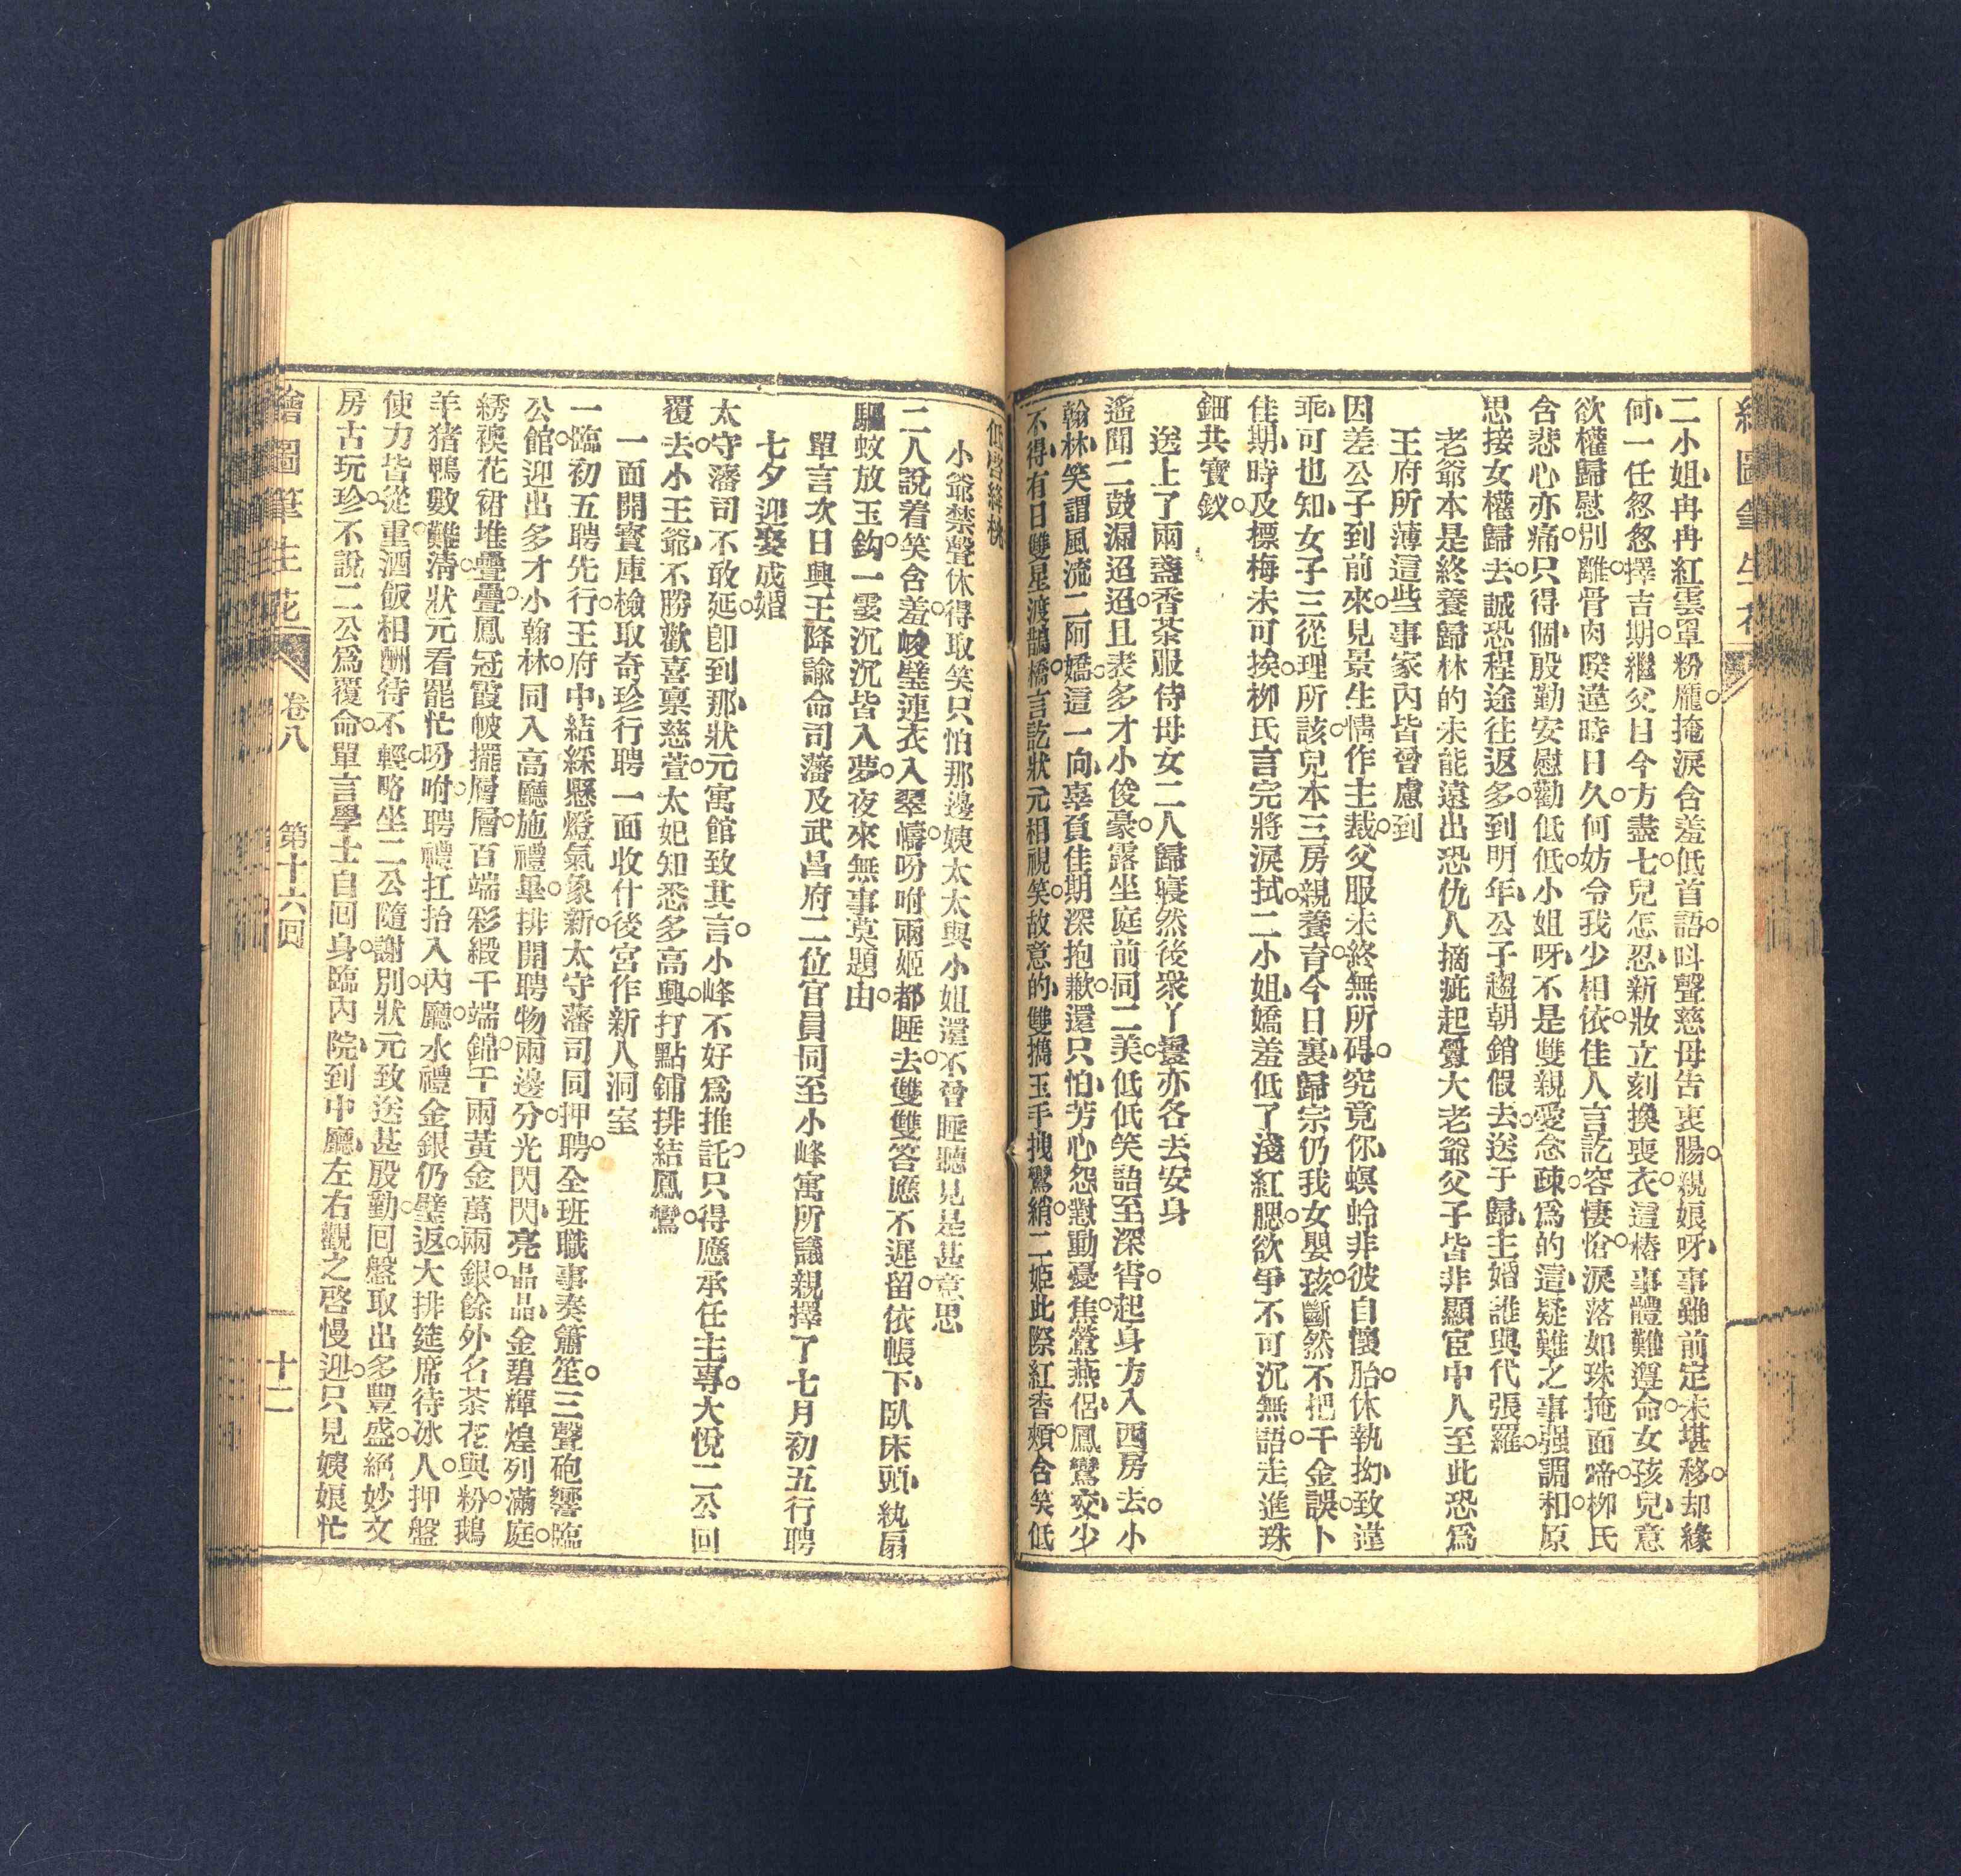 繪圖筆生花
二小姐冉冉紅雲罩粉龐掩淚含羞低首語呌聲慈母告衷腸親娘呀事雖前定未堪移却緣
何一任忽忽擇吉期繼父日今方盡七兒怎忍新妝立刻換喪衣這樁事體難遵命女孩兒意
欲權歸慰別離骨肉暌違時日久何妨令我少相依佳人言訖容悽愴淚落如珠掩面啼柳氏
含悲心亦痛只得個殷勤安慰勸低低小姐呀不是雙親愛念疎爲的這疑難之事强調和原
思接女權歸去誠恐程途往返多到明年公子趨朝銷假去送子歸主婚誰與代張羅
老爺本是終養歸林的未能遠出恐仇人摘疵起釁大老爺父子皆非顯宦中人至此恐爲
王府所薄這些事家內皆曾慮到
因差公子到前來見景生情作主裁父服未終無所碍究竟你螟蛉非彼自懷胎休執抝致違
乖可也知女子三從理所該兒本三房親養育今日裏歸宗仍我女嬰孩斷然不把千金誤卜
佳期時及標梅未可挨柳氏言完將淚拭二小姐嬌羞低了淺紅腮欲爭不可沉無語走進珠
鈿共寶釵
送上了兩盞香茶服侍母女二人歸寢然後衆丫鬟亦各去安身
遙聞二鼓漏迢迢且表多才小俊豪露坐庭前同二美低低笑語至深宵起身方入西房去小
翰林笑謂風流二阿嬌這一向辜負佳期深抱歉還只怕芳心怨懟動憂焦鶯燕侶鳳鸞交少
不得有日雙星渡鵲橋言訖狀元相視笑故意的雙搊玉手拽鸞綃二姬此際紅香頰含笑低
低啓絳桃
小爺禁聲休得取笑只怕那邊姨太太與小姐還不曾睡聽見是甚意思
二人說着笑含羞峻璧連衣入翠幬吩咐兩姬都睡去雙雙答應不遲留依帳下臥床頭紈扇
驅蚊放玉鈎一霎沉沉皆入夢夜來無事莫題由
單言次日興王降諭命司藩及武昌府二位官員同至小峰寓所議親擇了七月初五行聘
七夕迎娶成婚
太守藩司不敢延卽到那狀元寓館致其言小峰不好爲推託只得應承任主專大悅二公回
覆去小王爺不勝歡喜稟慈萱太妃知悉多高興打點鋪排結鳳鸞
一面開寶庫檢取奇珍行聘一面收什後宮作新人洞室
一臨初五聘先行王府中結綵懸燈氣象新太守藩司同押聘全班職事奏簫笙三聲砲響臨
公館迎出多才小翰林同入高廳施禮畢排開聘物兩邊分光閃閃亮晶晶金碧輝煌列滿庭
綉襖花裙堆疊疊鳳冠霞帔擺層層百端彩緞千端錦千兩黃金萬兩銀餘外名茶花與粉鵝
羊猪鴨數難淸狀元看罷忙吩咐聘禮扛抬入內廳水禮金銀仍璧返大排筵席待冰人押盤
使力皆從重酒飯相酬待不輕略坐二公隨謝別狀元致送甚殷勤回盤取出多豐盛絕妙文
房古玩珍不說二公爲覆命單言學士自回身臨內院到中廳左右觀之啓慢迎只見姨娘忙
繪圖筆生花 卷八 第十六回 十二